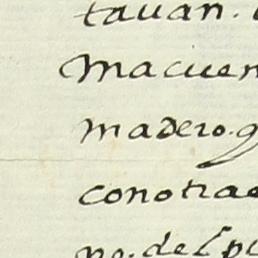 tauan.
Macuen
madero. q
conotrae
no. del pu